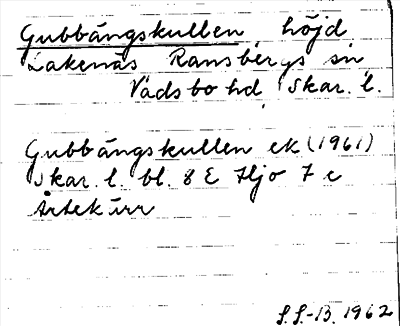 Gubbängskullen, höjd
Lakenäs Ransbergs sn
Vadsbo hd, Skar. l.
Gubbängskullen ek (1961)
Skar. l. bl. 8 E Hjo 7 c
Ärtekärr
S.S.-B. 1962